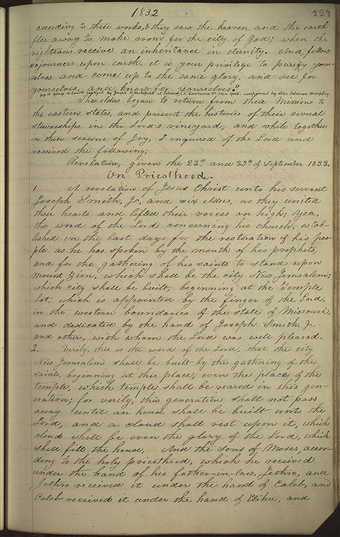 1832 229
cording to their works; & they saw the heaven and the earth
flee away to make room for the city of God; when the
righteous receive an inheritance in eternity. And, fellow
sojourners upon earth, it is your privilege to purify your-
selves and come up to the same glory, and see for
yourselves, and know for yourselves.
The elders began to return from their Missions to
the eastern states, and present the histories of their several
stewardships in the Lord's vineyard; and while together
in these seasons of Joy, I inquired of the Lord and
received the following,
Revelation, given the 22nd and 23rd of September 1832.
On Priesthood.
1. A revelation of Jesus Christ unto his servant
Joseph Smith, Jr, and six elders, as they united
their hearts and lifted their voices on high; Yea,
the word of the Lord concerning his church, estab-
lished in the last days for the restoration of his peo-
ple as he has spoken by the mouth of his prophets,
and for the gathering of his saints to stand upon
Mount Zion, which shall be the city New Jerusalem;
which city shall be built, beginning at the Temple
Lot, which is appointed by the finger of the Lord,
in the western boundaries of the state of Missouri,
and dedicated by the hand of Joseph Smith, Jr.
and others, with whom the Lord was well pleased.
2. Verily, this is the word of the Lord, that the city
New Jerusalem shall be built by the gathering of the
saints, beginning at this place, even the place of the
temple, which temple shall be reared in this gen-
eration; for verily, this generation shall not pass
away until an house shall be built unto the
Lord, and a cloud shall rest upon it, which
cloud shall be even the glory of the Lord, which
shall fill the house. And the sons of Moses, accor-
ding to the holy priesthood, which he received
under the hand of his father-in-law, Jethro; and
Jethro received it under the hand of Caleb; and
Caleb received it under the hand of Elihu; and